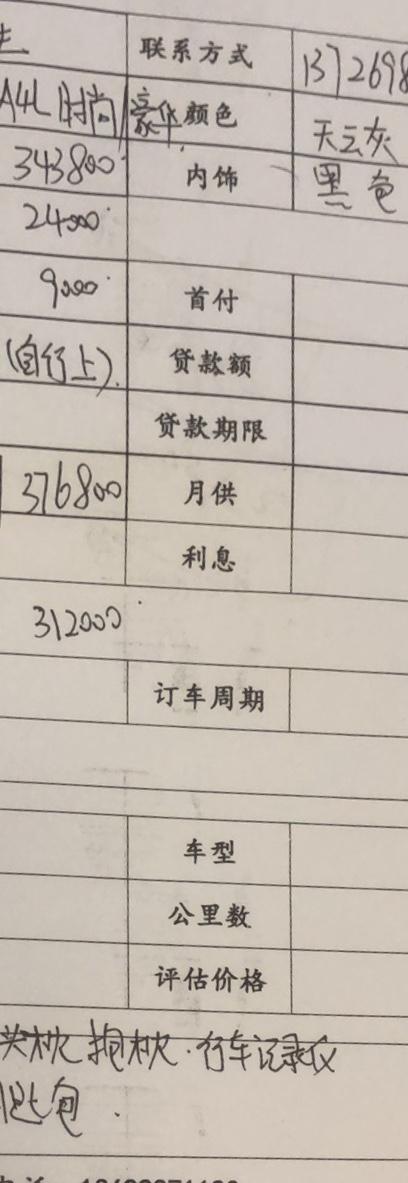 联系方式 1372698
A4L 时尚/豪华 颜色 天云灰
343800 内饰 黑色
24000
9000 首付
(自行上). 贷款额
贷款期限
376800 月供
利息
312000
订车周期
车型
公里数
评估价格
头枕 抱枕. 行车记录仪
包.